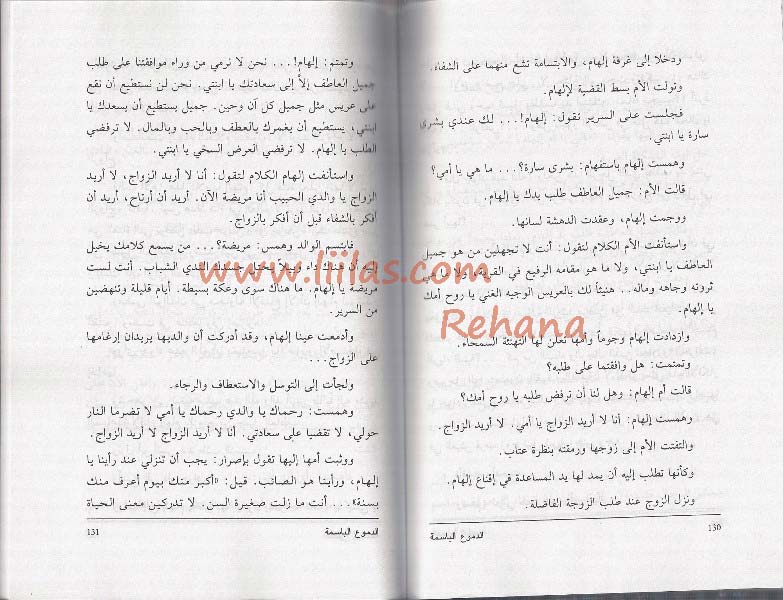 ودخلا إلى غرفة إلهام، والابتسامة تشع منهما على الشفاء.
وتولت الأم بسط القضية لإلهام.
فجلست على السرير تقول: إلهام!... لك عندي بشرى
سارة يا ابنتي.
وهمست إلهام باستفهام: بشرى سارة؟... ما هي يا أمي؟
قالت الأم: جميل العاطف طلب يدك يا إلهام.
ووجمت إلهام، وعقدت الدهشة لسانها.
واستأنفت الأم الكلام لتقول: أنت لا تجهلين من هو جميل
العاطف يا ابنتي، ولا ما هو مقامه الرفيع في القرية، ولا ما هي
ثروته وجاهه وماله.. هنيئاً لك بالعريس الوجيه الغني يا روح أمك
يا إلهام.
وازدادت إلهام وجوماً وأمها تعلن لها التهنئة السمحاء.
وتمتمت: هل وافقتما على طلبه؟
قالت أم إلهام: وهل لنا أن نرفض طلبه يا روح أمك؟
وهمست إلهام: أنا لا أريد الزواج يا أمي. لا أريد الزواج.
والتفتت الأم إلى زوجها ورمقته بنظرة عتاب.
وكأنها تطلب إليه أن يمد لها يد المساعدة في إقناع إلهام.
ونزل الزوج عند طلب الزوجة الفاضلة.
130
الدموع الباسمة
وتمتم: إلهام!... نحن لا نرمي من وراء موافقتنا على طلب
جميل العاطف إلاّ إلى سعادتك يا ابنتي. نحن لن نستطيع أن نقع
على عريس مثل جميل كل آن وحين. جميل يستطيع أن يسعدك يا
ابنتي، يستطيع أن يغمرك بالعطف وبالحب وبالمال. لا ترفضي
الطلب يا إلهام. لا ترفضي العرض السخي يا ابنتي.
واستأنفت إلهام الكلام لتقول: أنا لا أريد الزواج، لا أريد
الزواج يا والدي الحبيب أنا مريضة الآن. أريد أن أرتاح، أريد أن
أفكر بالشفاء قبل أن أفكر بالزواج.
فابتسم الوالد وهمس: مريضة؟... من يسمع كلامك يخيل
إليه أن هناك داء وبيلاً ينخل جسدك الندي الشباب. أنت لست
مريضة يا إلهام. ما هناك سوى وعكة بسيطة. أيام قليلة وتنهضين
من السرير.
وأدمعت عينا إلهام، وقد أدركت أن والديها يريدان إرغامها
على الزواج...
ولجأت إلى التوسل والاستعطاف والرجاء.
وهمست: رحماك يا والدي رحماك يا أمي لا تضرما النار
حولي، لا تقضيا على سعادتي. أنا لا أريد الزواج لا أريد الزواج.
ووثبت أمها إليها تقول بإصرار: يجب أن تنزلي عند رأينا يا
إلهام، ورأينا هو الصائب. قيل: «أكبر منك بيوم أعرف منك
بسنة»... أنت ما زلت صغيرة السن. لا تدركين معنى الحياة
الدموع الباسمة
131
www.liilas.com
Rehana